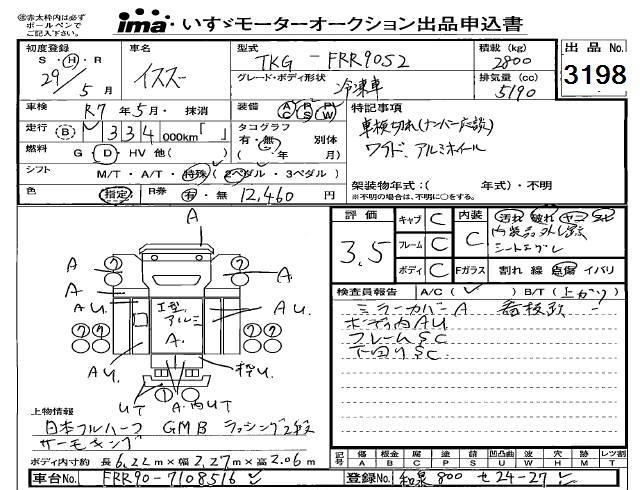 ㊟赤太枠内は必ず
ボールペンで
ご記入下さい。
ima・いすゞモーターオークション出品申込書
初度登録 車名 型式 積載(kg) 出品No.
S・H・R イスズ TKG - FRR90S2 2800
29年 5月 グレード・ボディ形状 冷凍車 排気量(cc) 5190 3198
車検 R7年5月・抹消 装備 AC PS PW 特記事項
走行 B M 334 000km「 」 タコグラフ 有・無 別体 車検切れ(ナンバー応談)
燃料 G D・HV 他( ) ( 年 月) ワイド、アルミホイール
シフト M/T・A/T・特殊(2ペダル・3ペダル)
色 指定 R券 有・無 12,460円 架装物年式:( 年式)・不明
※不明の場合は、不明に○をする。
A 評価 キャブ C 内装 汚れ 破れ
3.5 フレーム C C
ボディ C Fガラス 割れ 線 点傷 イバリ
検査員報告 A/C( ✓ ) B/T(
A ⑦ ⑦ A
ミラーカバーA 看板跡
A A ボディ内AU
AU I型 アルミ AU フレームSC
⑦⑦ A. ⑦⑦ 下回りSC
AU.
UT A.内UT
上物情報
日本フルハーフ GMB ラッシング2段
サーモキング
ボディ内寸約 長6.22m×幅2.27m×高2.06m
記号 傷A 板金B 腐C 塗装P 請S 凹凸曲U 波W 穴H 跡M レッツ割T
車台No. FRR90-7108516 登録No. 和泉 800 せ 24-27